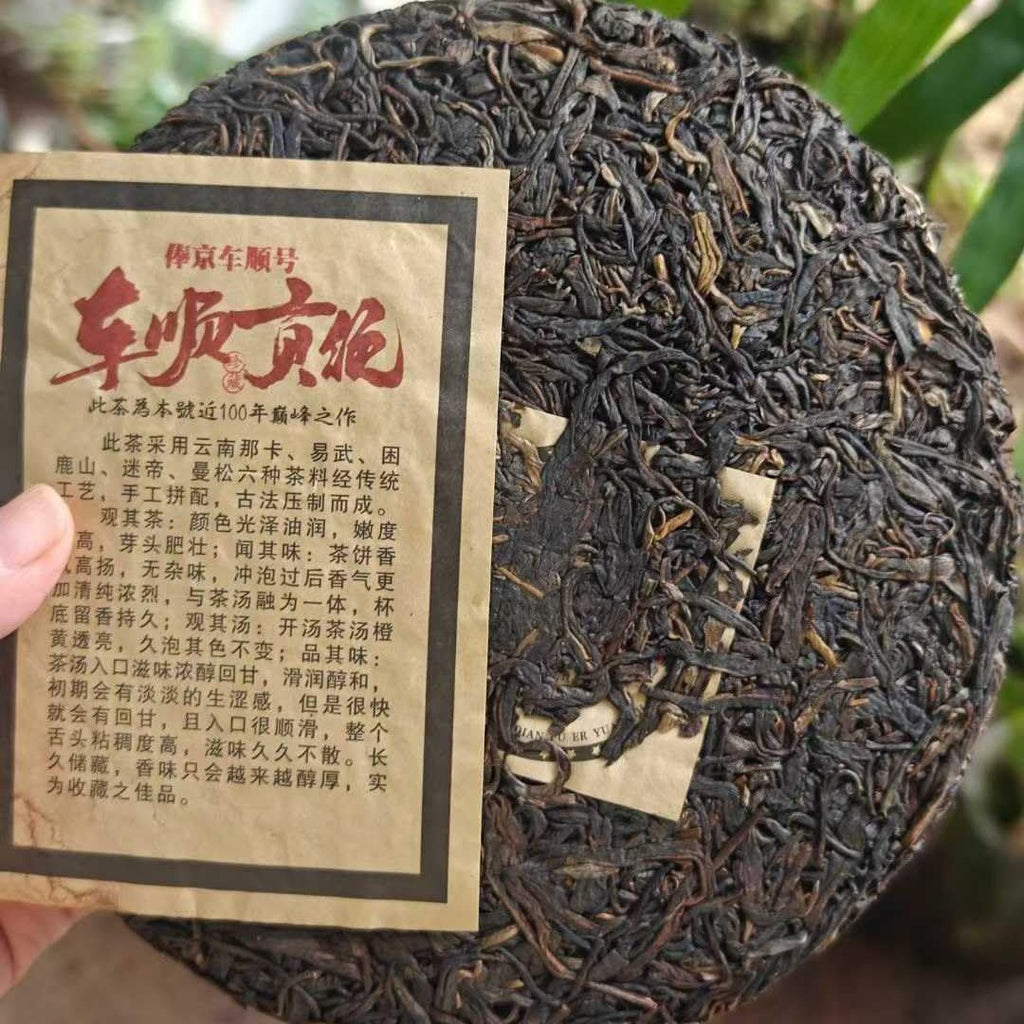 俸京车顺号
车顺贡饼
珍藏
此茶為本號近100年巅峰之作
此茶采用云南那卡、易武、困
鹿山、迷帝、曼松六种茶料经传统
工艺，手工拼配，古法压制而成。
观其茶：颜色光泽油润，嫩度
高，芽头肥壮；闻其味：茶饼香
高扬，无杂味，冲泡过后香气更
加清纯浓烈，与茶汤融为一体，杯
底留香持久；观其汤：开汤茶汤橙
黄透亮，久泡其色不变；品其味：
茶汤入口滋味浓醇回甘，滑润醇和，
初期会有淡淡的生涩感，但是很快
就会有回甘，且入口很顺滑，整个
舌头粘稠度高，滋味久久不散。长
久储藏，香味只会越来越醇厚，实
为收藏之佳品。
ER YU